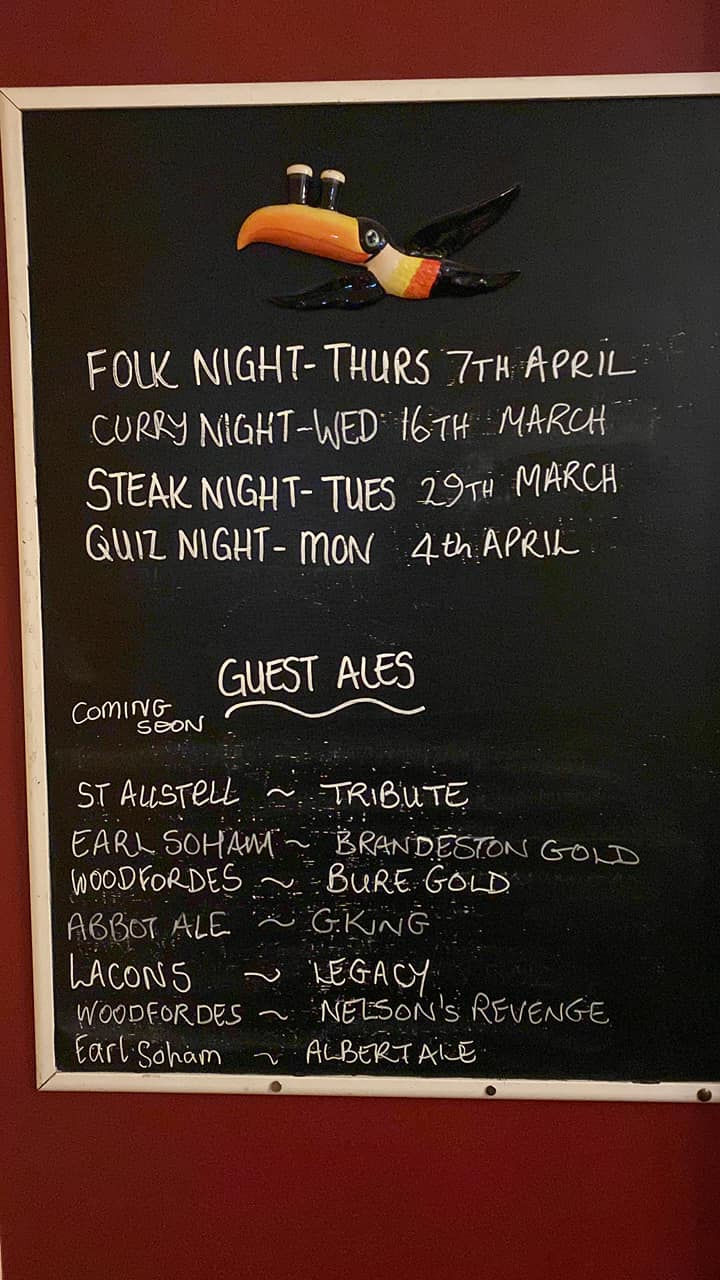 FOLK NIGHT- THURS 7TH APRIL
CURRY NIGHT-WED 16TH MARCH
STEAK NIGHT- TUES 29TH MARCH
QUIZ NIGHT- MON 4th APRIL
GUEST ALES
COMING
SOON
ST AUSTELL ~ TRIBUTE
EARL SOHAM ~ BRANDESTON GOLD
WOODFORDES ~ BURE GOLD
ABBOT ALE ~ G.KING
LACONS ~ LEGACY
WOODFORDES ~ NELSON'S REVENGE
Earl Soham ~ ALBERT ALE